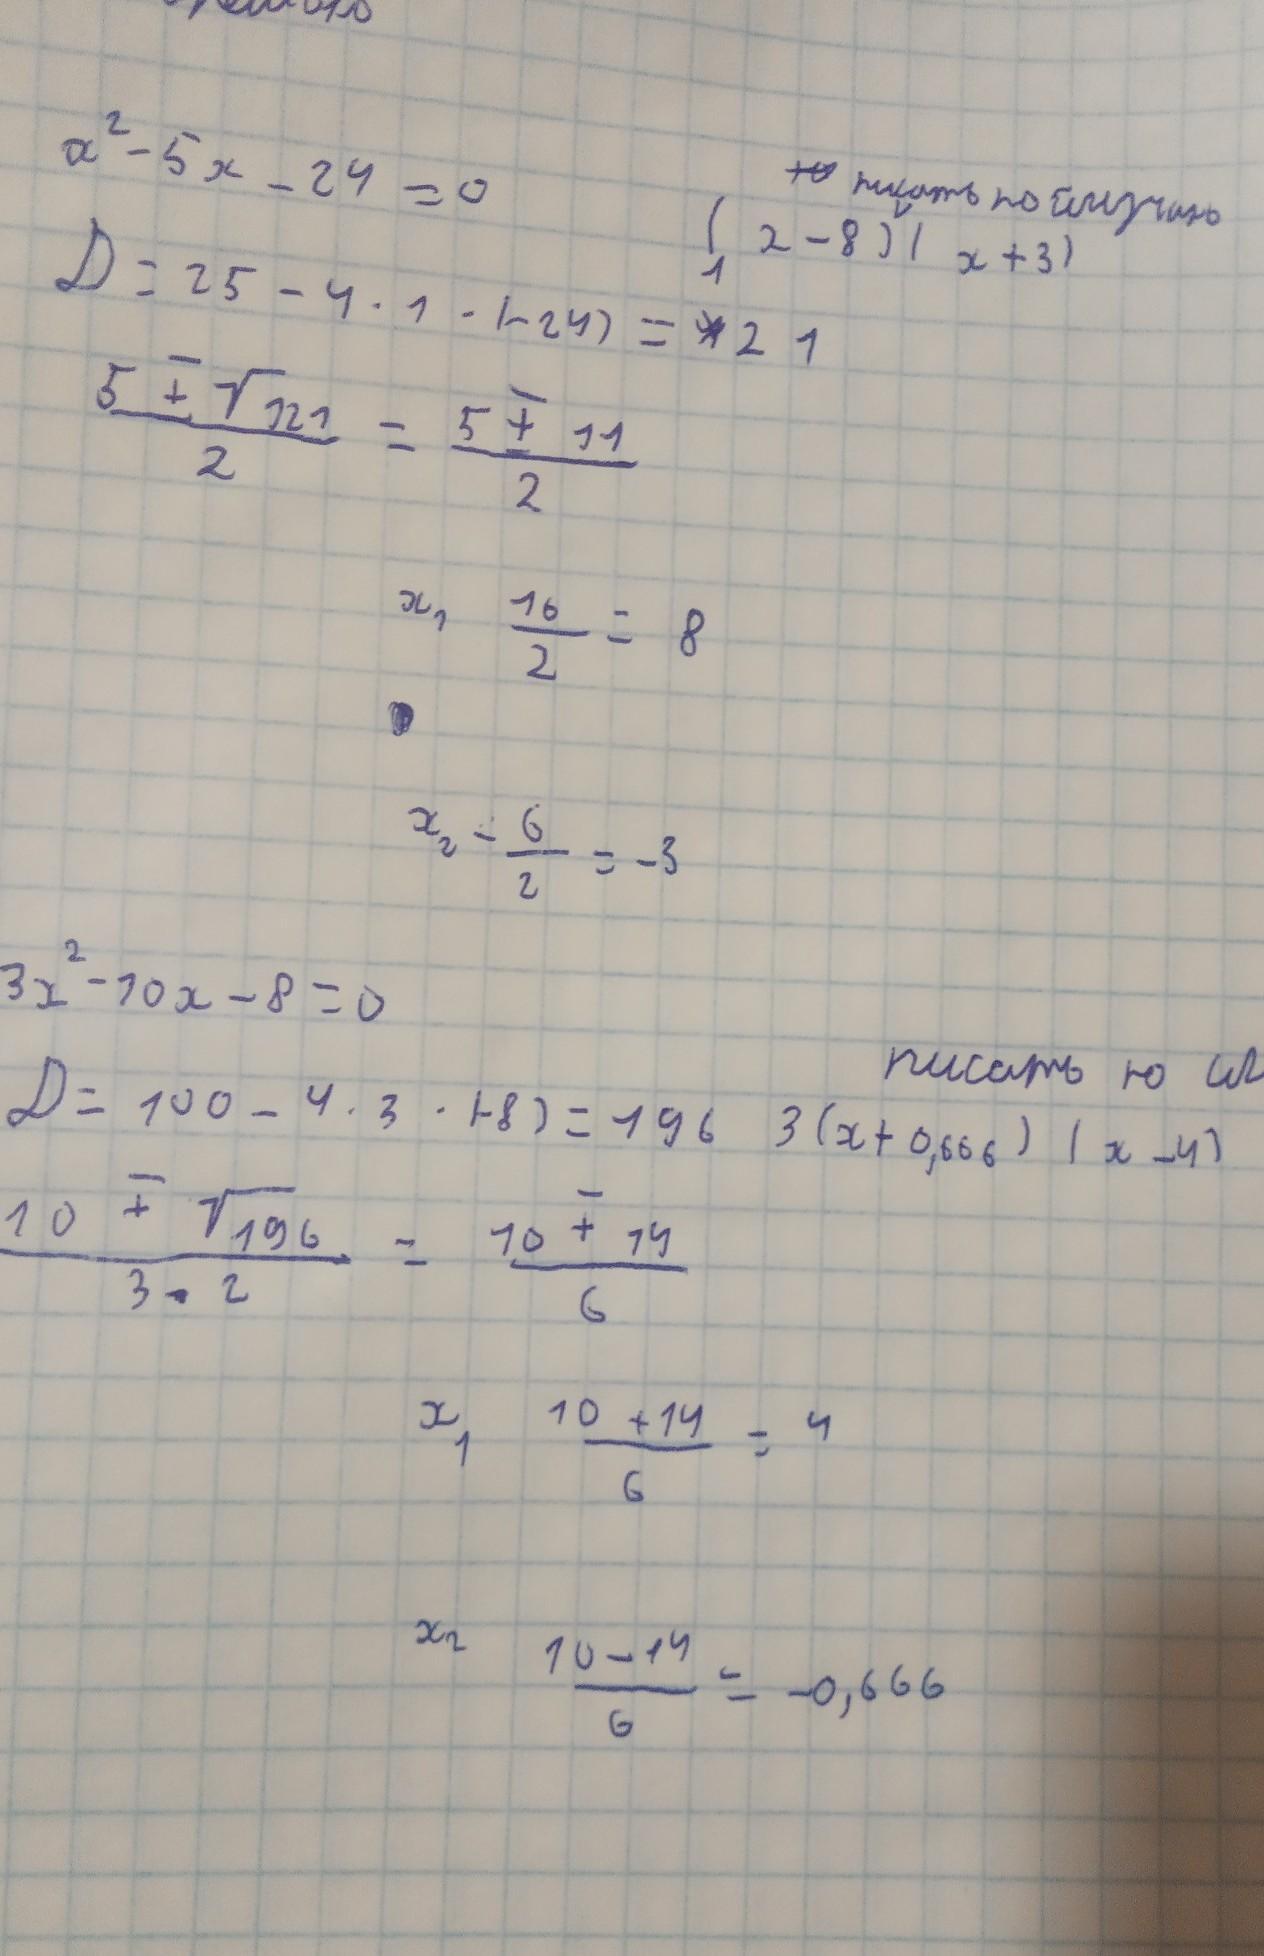 x² - 5x - 24 = 0
писать
1(x - 8)(x + 3)
D = 25 - 4 · 1 · (-24) = 121
(5 ∓ √121)/2 = (5 ∓ 11)/2
x₁ 16/2 = 8
x₂ - 6/2 = -3
3x² - 10x - 8 = 0
писать
D = 100 - 4 · 3 · (-8) = 196 3(x + 0,666)(x - 4)
(10 ∓ √196)/(3 · 2) = (10 ∓ 14)/6
x₁ (10 + 14)/6 = 4
x₂ (10 - 14)/6 = -0,666